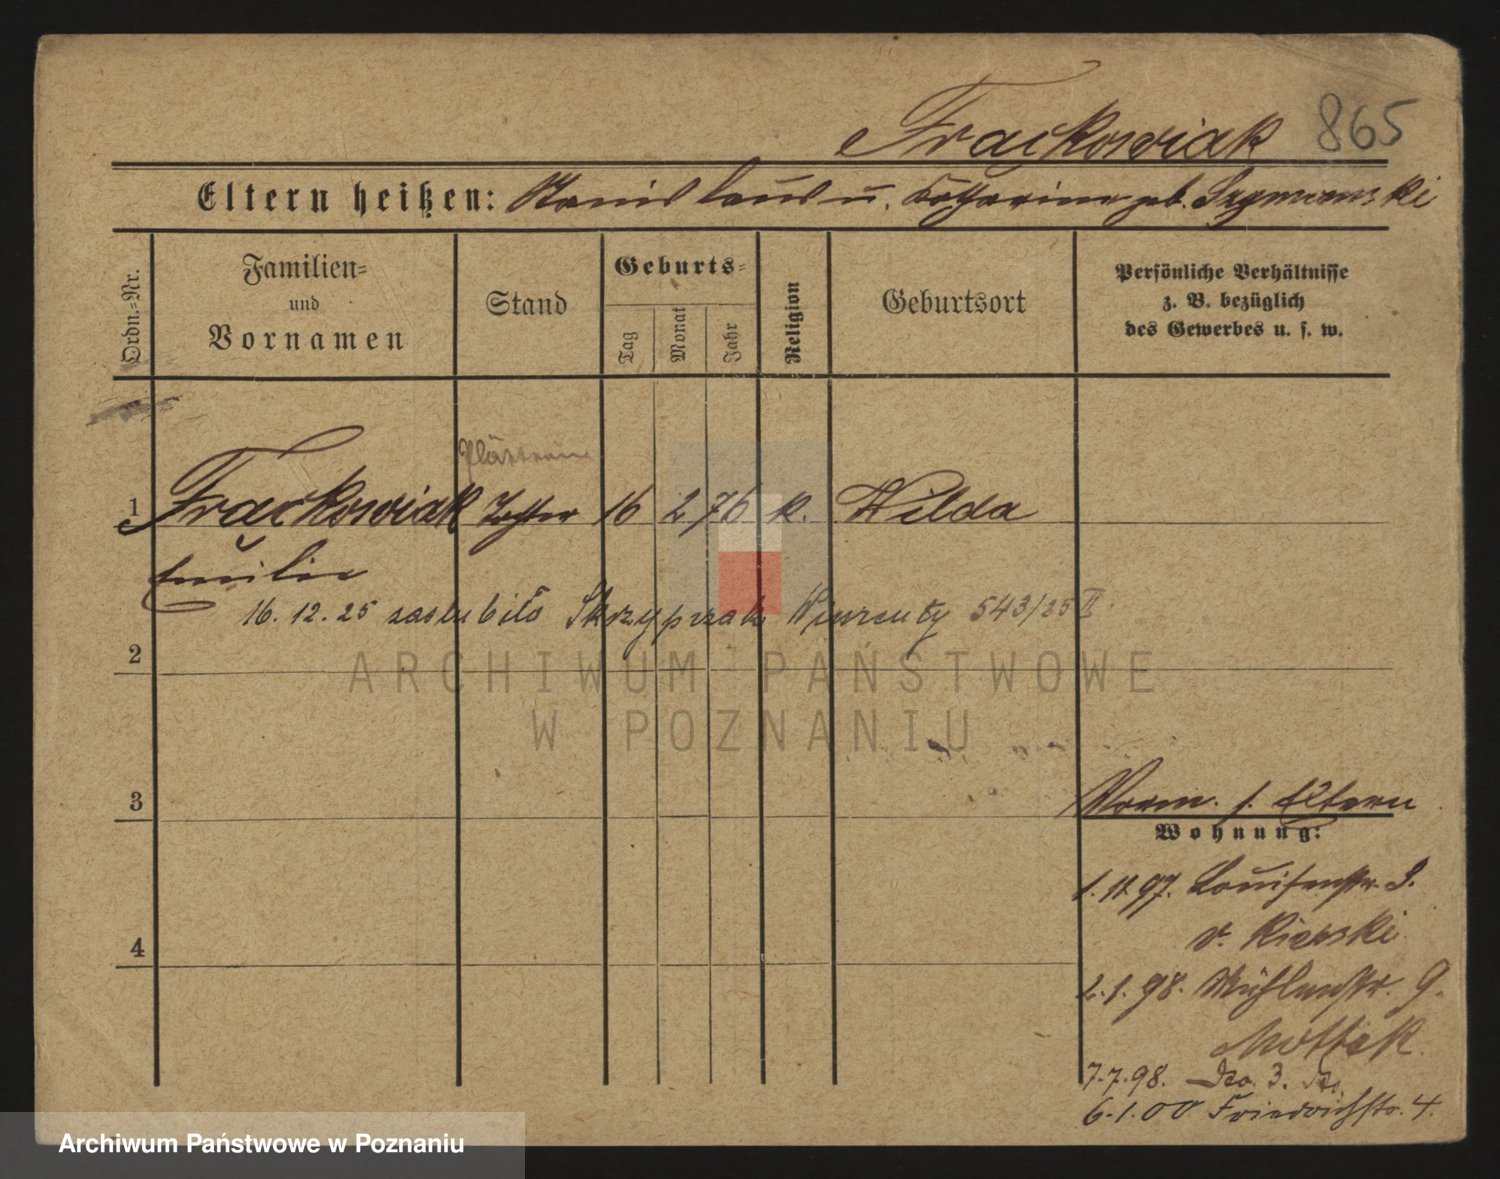 Frąckowiak 865
Eltern heißen: Stanislaus u. Katharina geb. Szymanski
Ordn.-Nr.
Familien-
und
Vornamen
Stand
Geburts-
Tag
Monat
Jahr
Religion
Geburtsort
Persönliche Verhältnisse
z. B. bezüglich
des Gewerbes u. s. w.
Plätterin
1 Frąckowiak Tochter 16 2 76 k. Wilda
Emilie
16.12.25 zaślubiło Skrzypczak Wincenty 543/25 II
2
ARCHIWUM PAŃSTWOWE
W POZNANIU
3
Vorm. s. Eltern
Wohnung:
1.11.97. Louisenstr. 3.
v. Kierski
4
2.1.98. Mühlenstr. 9.
Mottek
7.7.98. Do. 3. Do.
6.1.00 Friedrichstr. 4.
Archiwum Państwowe w Poznaniu